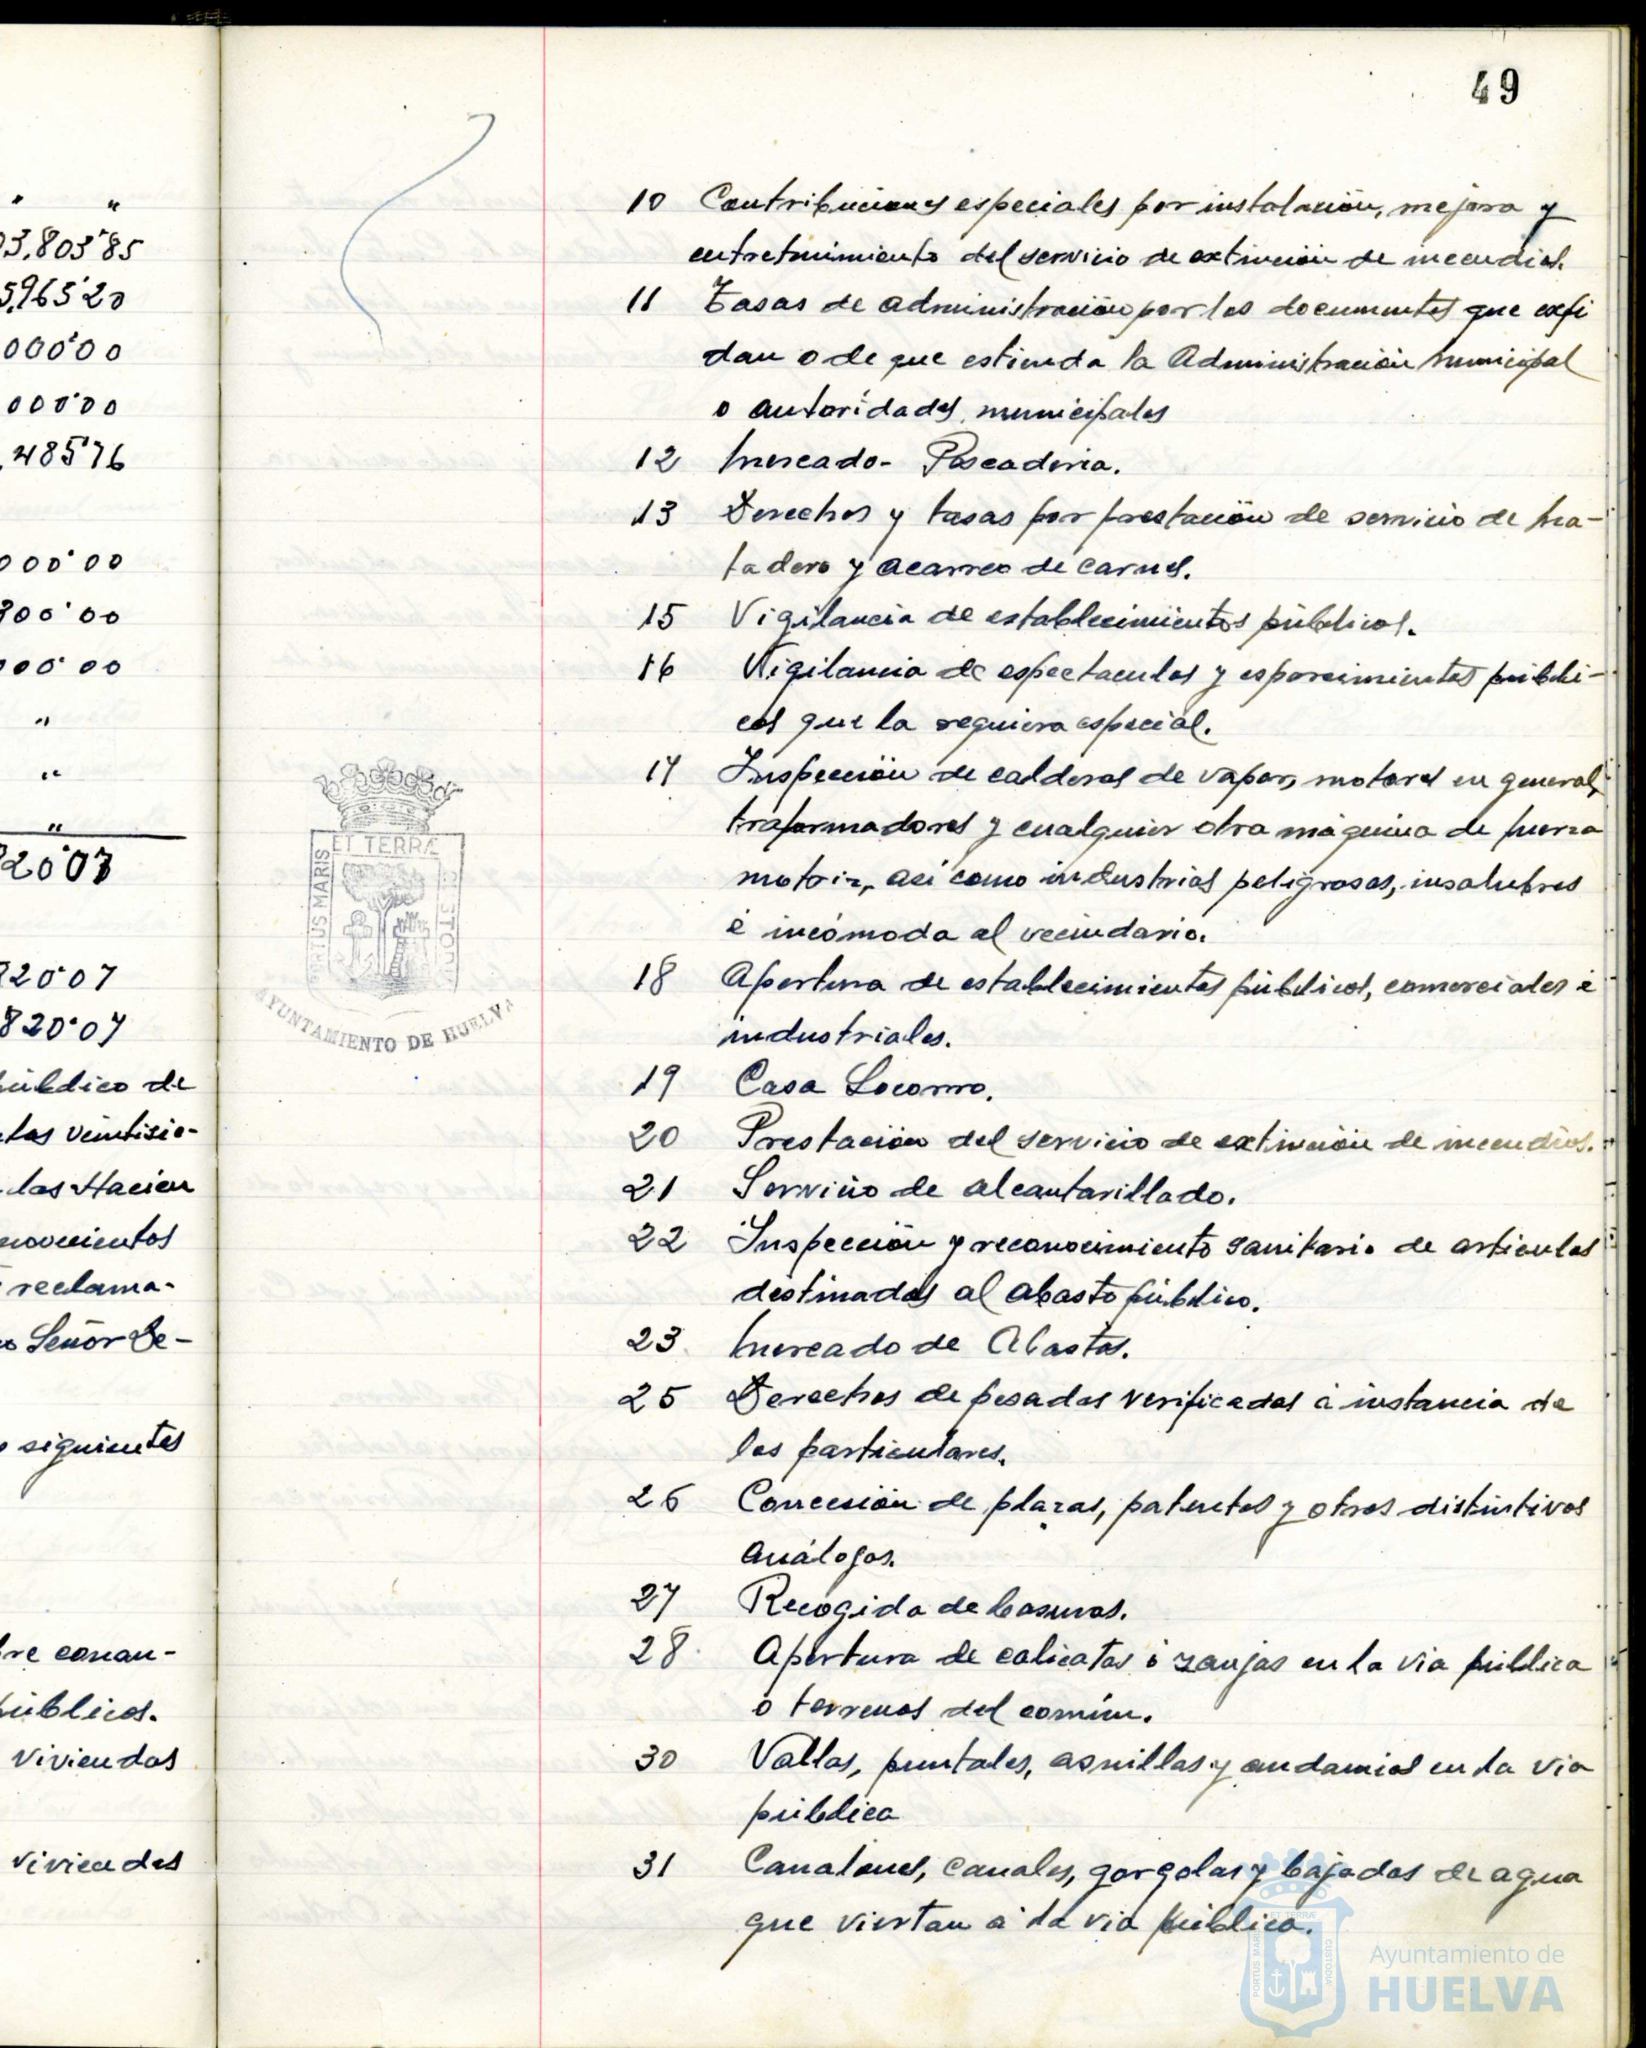 49
" "
03.803'85
5.965'20
000'00
00'00
.485'76
000'00
300'00
000'00
"
"
"
20'07
820'07
820'07
público de
tas veintisie-
las Hacien
novecientos
reclama-
Señor De-
siguientes
bre conan-
públicos.
viviendas
viviendas
10 Contribuciones especiales por instalación, mejora y
entretenimiento del servicio de extinción de incendios.
11 Tasas de administración por los documentos que expi
dan o de que estienda la Administración Municipal
o autoridades municipales
12 Mercado- Pescaderia.
13 Derechos y tasas por prestación de servicio de Ma-
tadero y acarreo de carnes.
15 Vigilancia de establecimientos públicos.
16 Vigilancia de espectaculos y esparcimientos públi-
cos que la requiera especial.
17 Inspección de calderas de vapor, motores en general,
traformadores y cualquier otra máquina de fuerza
motriz, así como industrias peligrosas, insalubres
é incómoda al vecindario.
18 Apertura de establecimientos públicos, comerciales é
industriales.
19 Casa Socorro.
20 Prestación del servicio de extinción de incendios.
21 Servicio de alcantarillado.
22 Inspección y reconocimiento sanitario de articulos
destinados al abasto público.
23 Mercado de Abastos.
25 Derechos de pesadas verificadas á instancia de
los particulares.
26 Concesión de plazas, patentes y otros distintivos
análogos.
27 Recogida de basuras.
28 Apertura de calicatas ó zanjas en la via pública
ó terrenos del común.
30 Vallas, puntales, asnillas y andamios en la via
pública
31 Canalones, canales, gorgolas y bajadas de agua
que viertan á la via pública.
PORTUS MARIS
ET TERRÆ
CUSTODIA
AYUNTAMIENTO DE HUELVA
PORTUS MARIS
ET TERRÆ
CUSTODIA
Ayuntamiento de
HUELVA